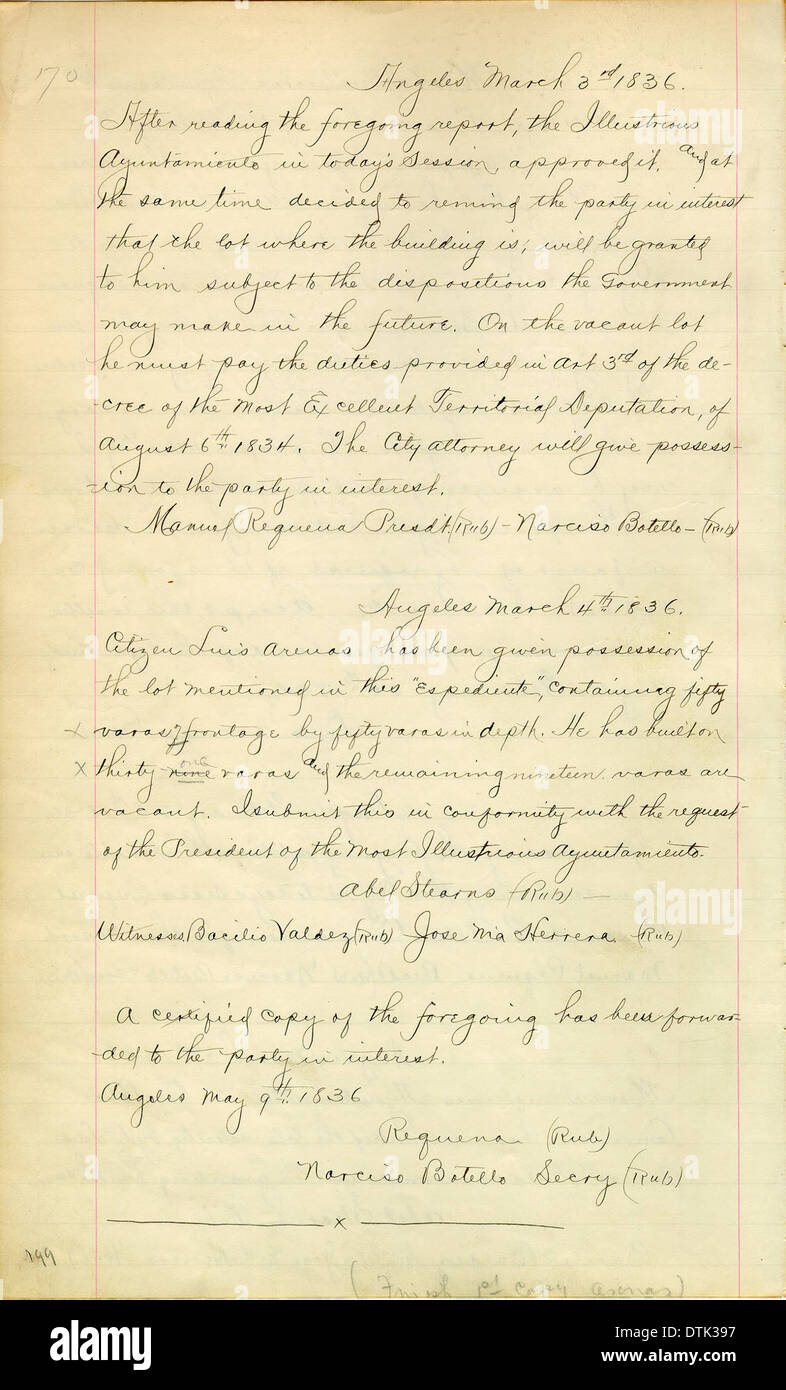 170
Angeles March 3rd 1836.
After reading the foregoing report, the Illustrious
Ayuntamiento in today's Session, approved it. And at
the same time decided to remind the party in interest
that the lot where the building is, will be granted
to him subject to the dispositions the Government
may make in the future. On the vacant lot
he must pay the duties provided in Art 3rd of the de-
-cree of the Most Excellent Territorial Deputation, of
August 6th 1834. The City attorney will give possess-
-ion to the party in interest.
Manuel Requena Presdt. (Rub) - Narciso Botello - (Rub)
Angeles March 4th 1836.
Citizen Luis Arenas has been given possession of
the lot mentioned in this "Espediente", containing fifty
x varas of frontage by fifty varas in depth. He has built on
x thirty nine one varas and the remaining nineteen varas are
vacant. I submit this in conformity with the request
of the President of the Most Illustrious Ayuntamiento.
Abel Stearns (Rub) -
Witnesses, Bacilio Valdez (Rub) - Jose Ma Herrera (Rub)
A certified copy of the foregoing has been forwar-
-ded to the party in interest.
Angeles May 9th 1836
Requena (Rub)
Narciso Botello Secry (Rub)
x
199
alamy
alamy
alamy
a
a
a
a
a
a
alamy
Image ID: DTK397
www.alamy.com